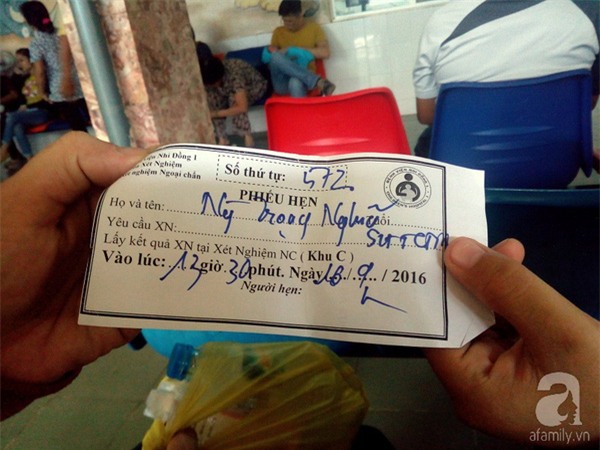 viện Nhi Đồng 1
Xét Nghiệm
nghiệm Ngoại chẩn
Số thứ tự: 572
PHIẾU HẸN
Họ và tên: Ng trọng Nghĩa tuổi
Yêu cầu XN:
Lấy kết quả XN tại Xét Nghiệm NC ( Khu C )
Vào lúc: 13 giờ 30 phút. Ngày 16 / 9 / 2016
Người hẹn:
a
afamily.vn